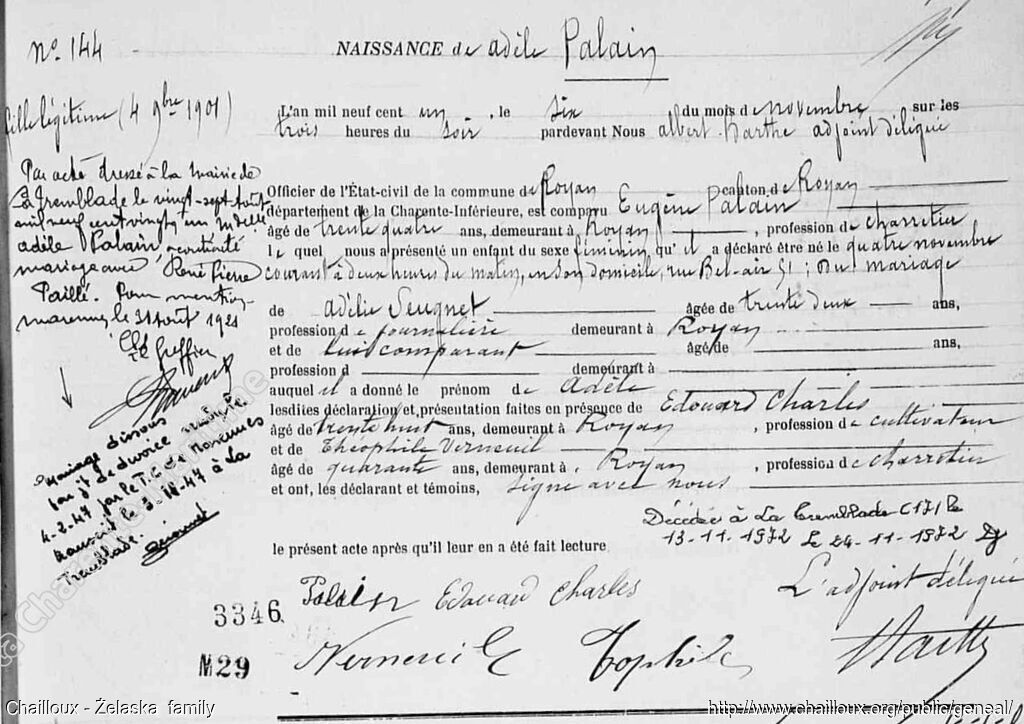 N° 144
NAISSANCE de adèle Palain
fille légitime (4 9bre 1901)
L'an mil neuf cent un, le six du mois de novembre sur les
trois heures du soir pardevant Nous albert Barthe adjoint délégué
Officier de l'État-civil de la commune de Royan canton de Royan
département de la Charente-Inférieure, est comparu Eugène Palain
âgé de trente quatre ans, demeurant à Royan, profession de charretier
le quel nous a présenté un enfant du sexe féminin qu'il a déclaré être né le quatre novembre
courant à deux heures du matin, en son domicile, rue Bel-air 51; Du mariage
de adélie Seugnet âgée de trente deux ans,
profession de journalière demeurant à Royan
et de lui comparant âgé de ans,
profession d demeurant à
auquel il a donné le prénom de Adèle
lesdites déclaration et présentation faites en présence de Edouard Charles
âgé de trente huit ans, demeurant à Royan, profession de cultivateur
et de Théophile Verneuil
âgé de quarante ans, demeurant à Royan, profession de charretier
et ont, les déclarant et témoins, signé avec nous
le présent acte après qu'il leur en a été fait lecture.
Par acte dressé à la mairie de
La Tremblade le vingt-sept août
mil neuf cent vingt un Mlle
adèle Palain a contracté
mariage avec René Pierre
Paillé. Pour mention
marennes, le 31 août 1921
Le Greffier
Mariage dissous
par jt de divorce rendu le
4-2-47 par le T.C. de Marennes
transcrit le à La
Tremblade.
Décédée à La Tremblade
13-11-1972 Le 24-11-1972
Palain Edouard Charles
L'adjoint délégué
3346
M29
Verneuil Tophile
Barthe
Chailloux - Żelaska family
http://www.chailloux.org/public/geneal/